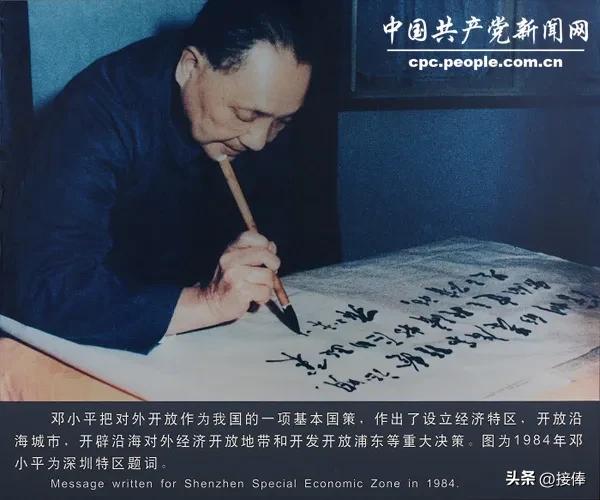 中国共产党新闻网
cpc.people.com.cn
邓小平把对外开放作为我国的一项基本国策，作出了设立经济特区，开放沿
海城市，开辟沿海对外经济开放地带和开发开放浦东等重大决策。图为1984年邓
小平为深圳特区题词。
Message written for Shenzhen Special Economic Zone in 1984.
头条 @接俸